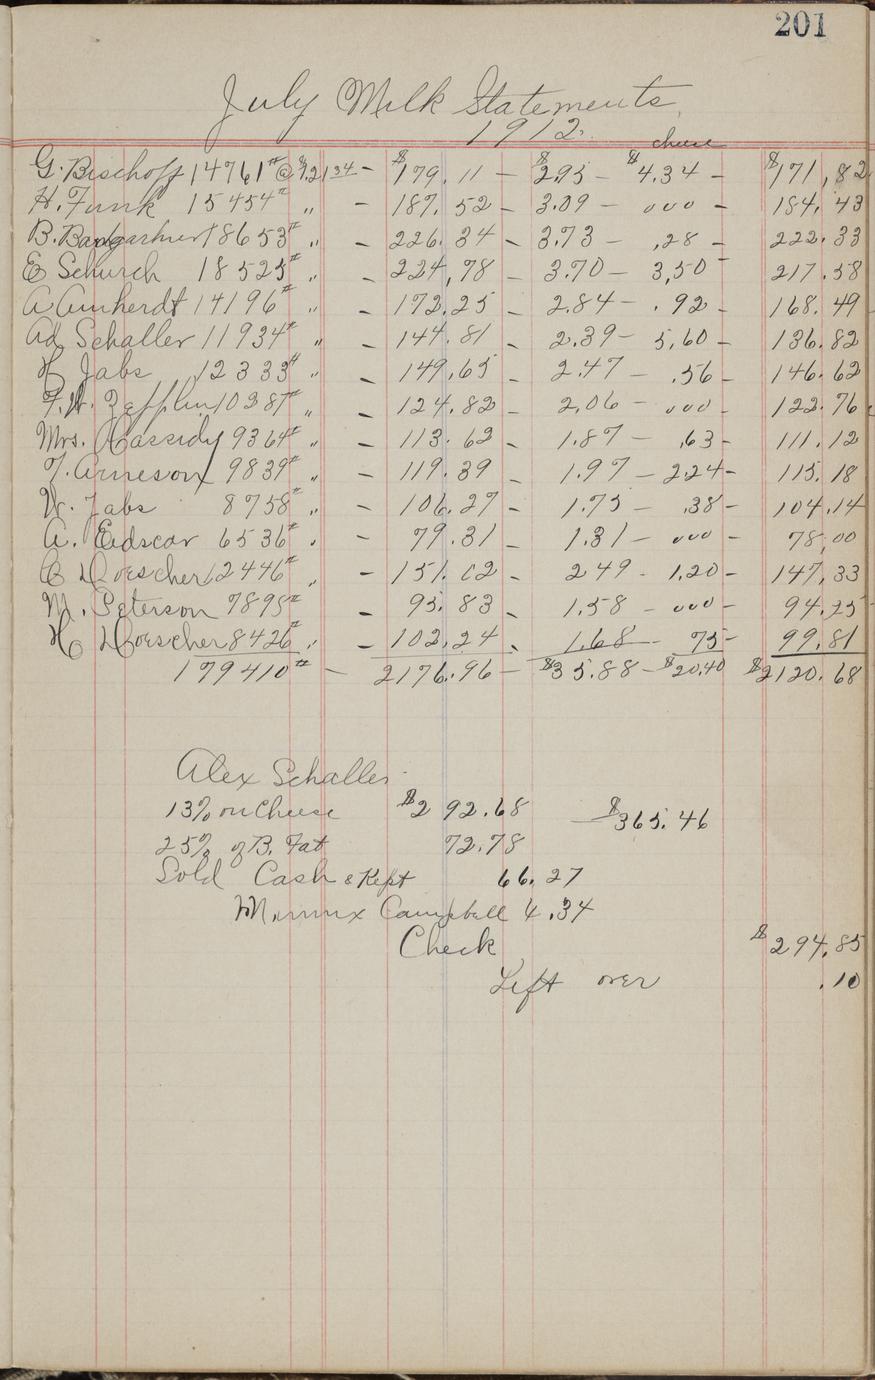 201
July Milk Statements
1912.
cheese
G. Bischoff 14761# @ $1.2134 - $179.11 - $2.95 - $4.34 - $171.82
H. Funk 15454# " - 187.52 - 3.09 - 000 - 184.43
B. Baumgartner 18653# " 226.34 - 3.73 - .28 - 222.33
E Schurch 18525# " - 224.78 - 3.70 - 3.50 - 217.58
A Amherdt 14196# " - 172.25 - 2.84 - .92 - 168.49
Ad Schaller 11934# " - 144.81 - 2.39 - 5.60 - 136.82
H Jabs 12333# " - 149.65 - 2.47 - .56 - 146.62
F.W. Zefflin 10287# " - 124.82 - 2.06 - 000 - 122.76
Mrs. Cassidy 9364# " - 113.62 - 1.87 - .63 - 111.12
T. Arneson 9839# " - 119.39 1.97 - 2.24 - 115.18
W. Jabs 8758# " - 106.27 - 1.75 - .38 - 104.14
A. Eidscar 6536# " - 79.31 - 1.31 - 000 - 78.00
C Doescher 12446# " - 151.02 - 2.49 - 1.20 - 147.33
M. Peterson 7895# - 95.83 - 1.58 - 000 - 94.25
H Doescher 8426# " - 102.24 - 1.68 - 75 - 99.81
179410# - 2176.96 - $35.88 - $20.40 $2120.68
Alex Schaller
13% on Cheese $292.68 - $365.46
25% of B. Fat 72.78
Sold Cash & Kept 66.27
Campbell 4.34
Check $294.85
Left over .10